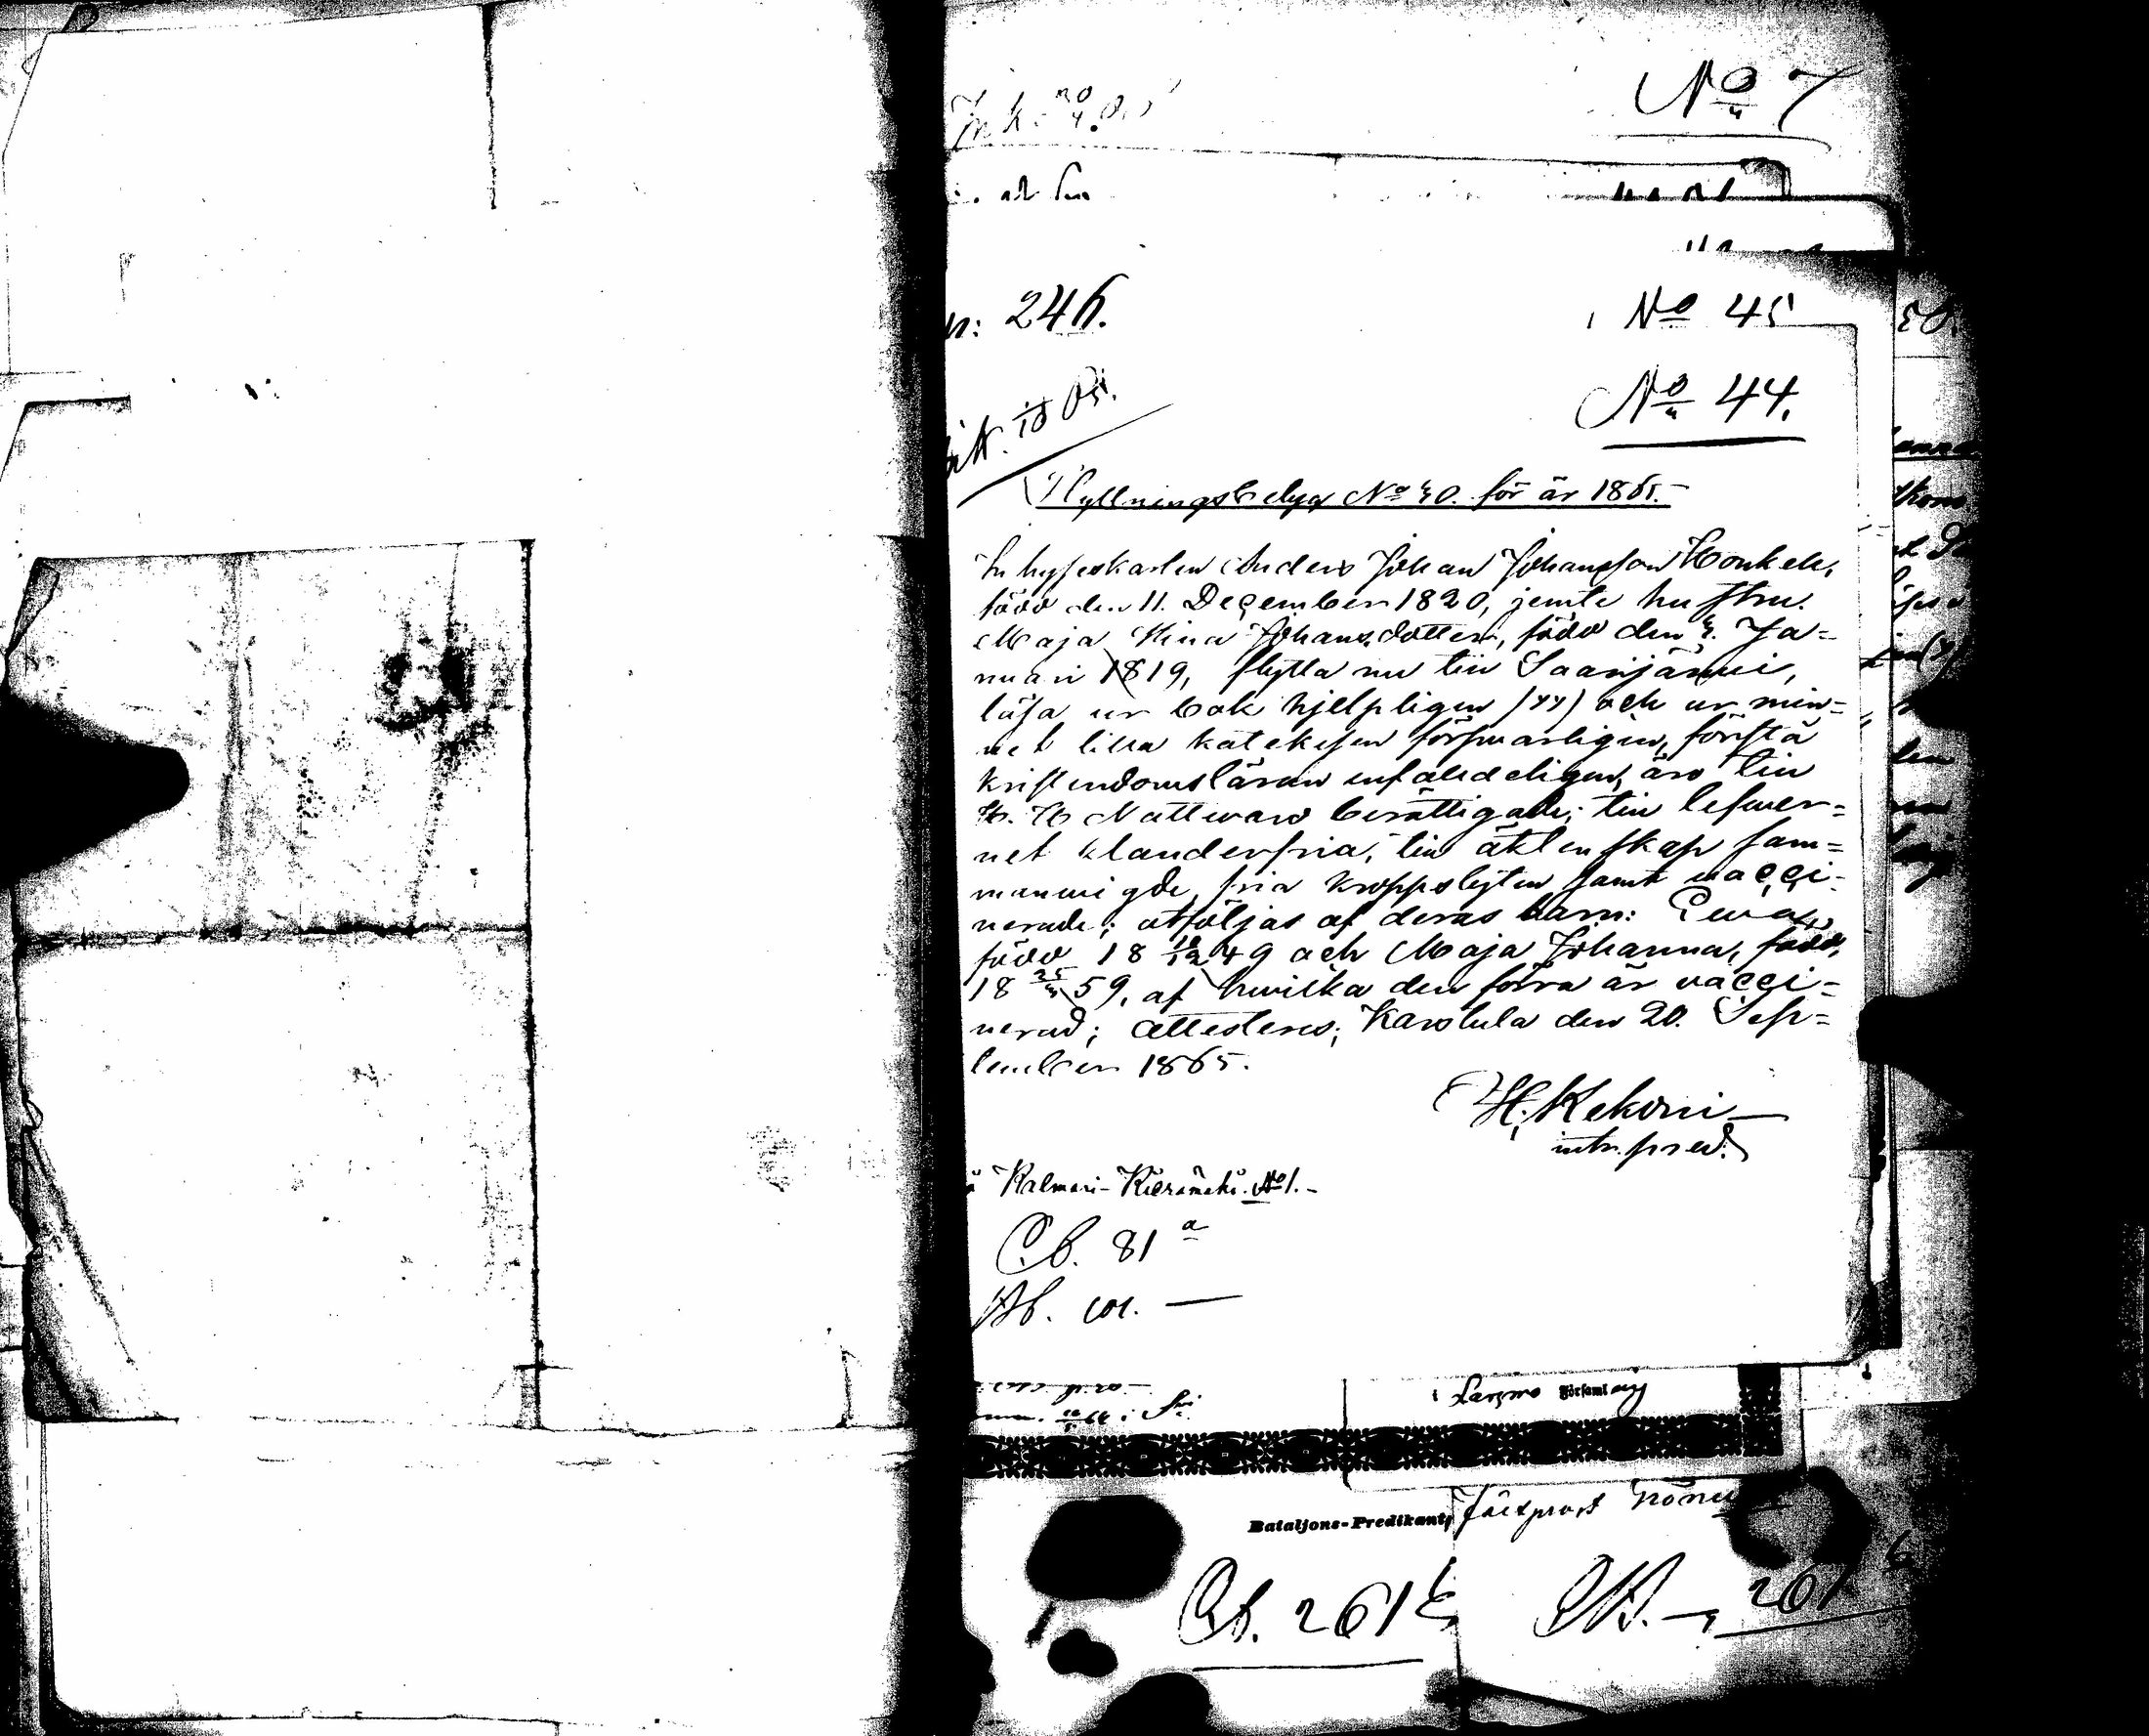 No 7
No 45
n: 246.
No 44.
Flyttningsbetyg No 40. för år 1865.-
Inhyseskarlen Anders Johan Johansson Honkela,
född den 11. December 1820, jemte hustru
Maja Stina Johansdotter, född den 4. Ja=
nuari 1819, flytta nu till Saarijärvi,
läsa ur bok hjelpligen (yy) och ur min=
net lilla katekesen försvarligen, förstå
kristendomsläran enfaldeligen, äro till
H. H. Nattward berättigade; till lefwer=
net klanderfria, till äktenskap sam=
manwigde, fria kroppslyten samt vacci=
nerade; åtföljas af deras barn: Ewa,
född 18 18/12 49 och Maja Johanna, född,
18 25/4 59, af hwilka den förra är vacci=
nerad; attesteras; Karstula den 20. Sep=
tember 1865.
H. Kekoni
intr. pred.
Kalmari-Kieromäki No 1.-
Cb. 81 a
Bb. —
i Larsmo Församling
Bataljons-Predikant,
Cb. 261
261